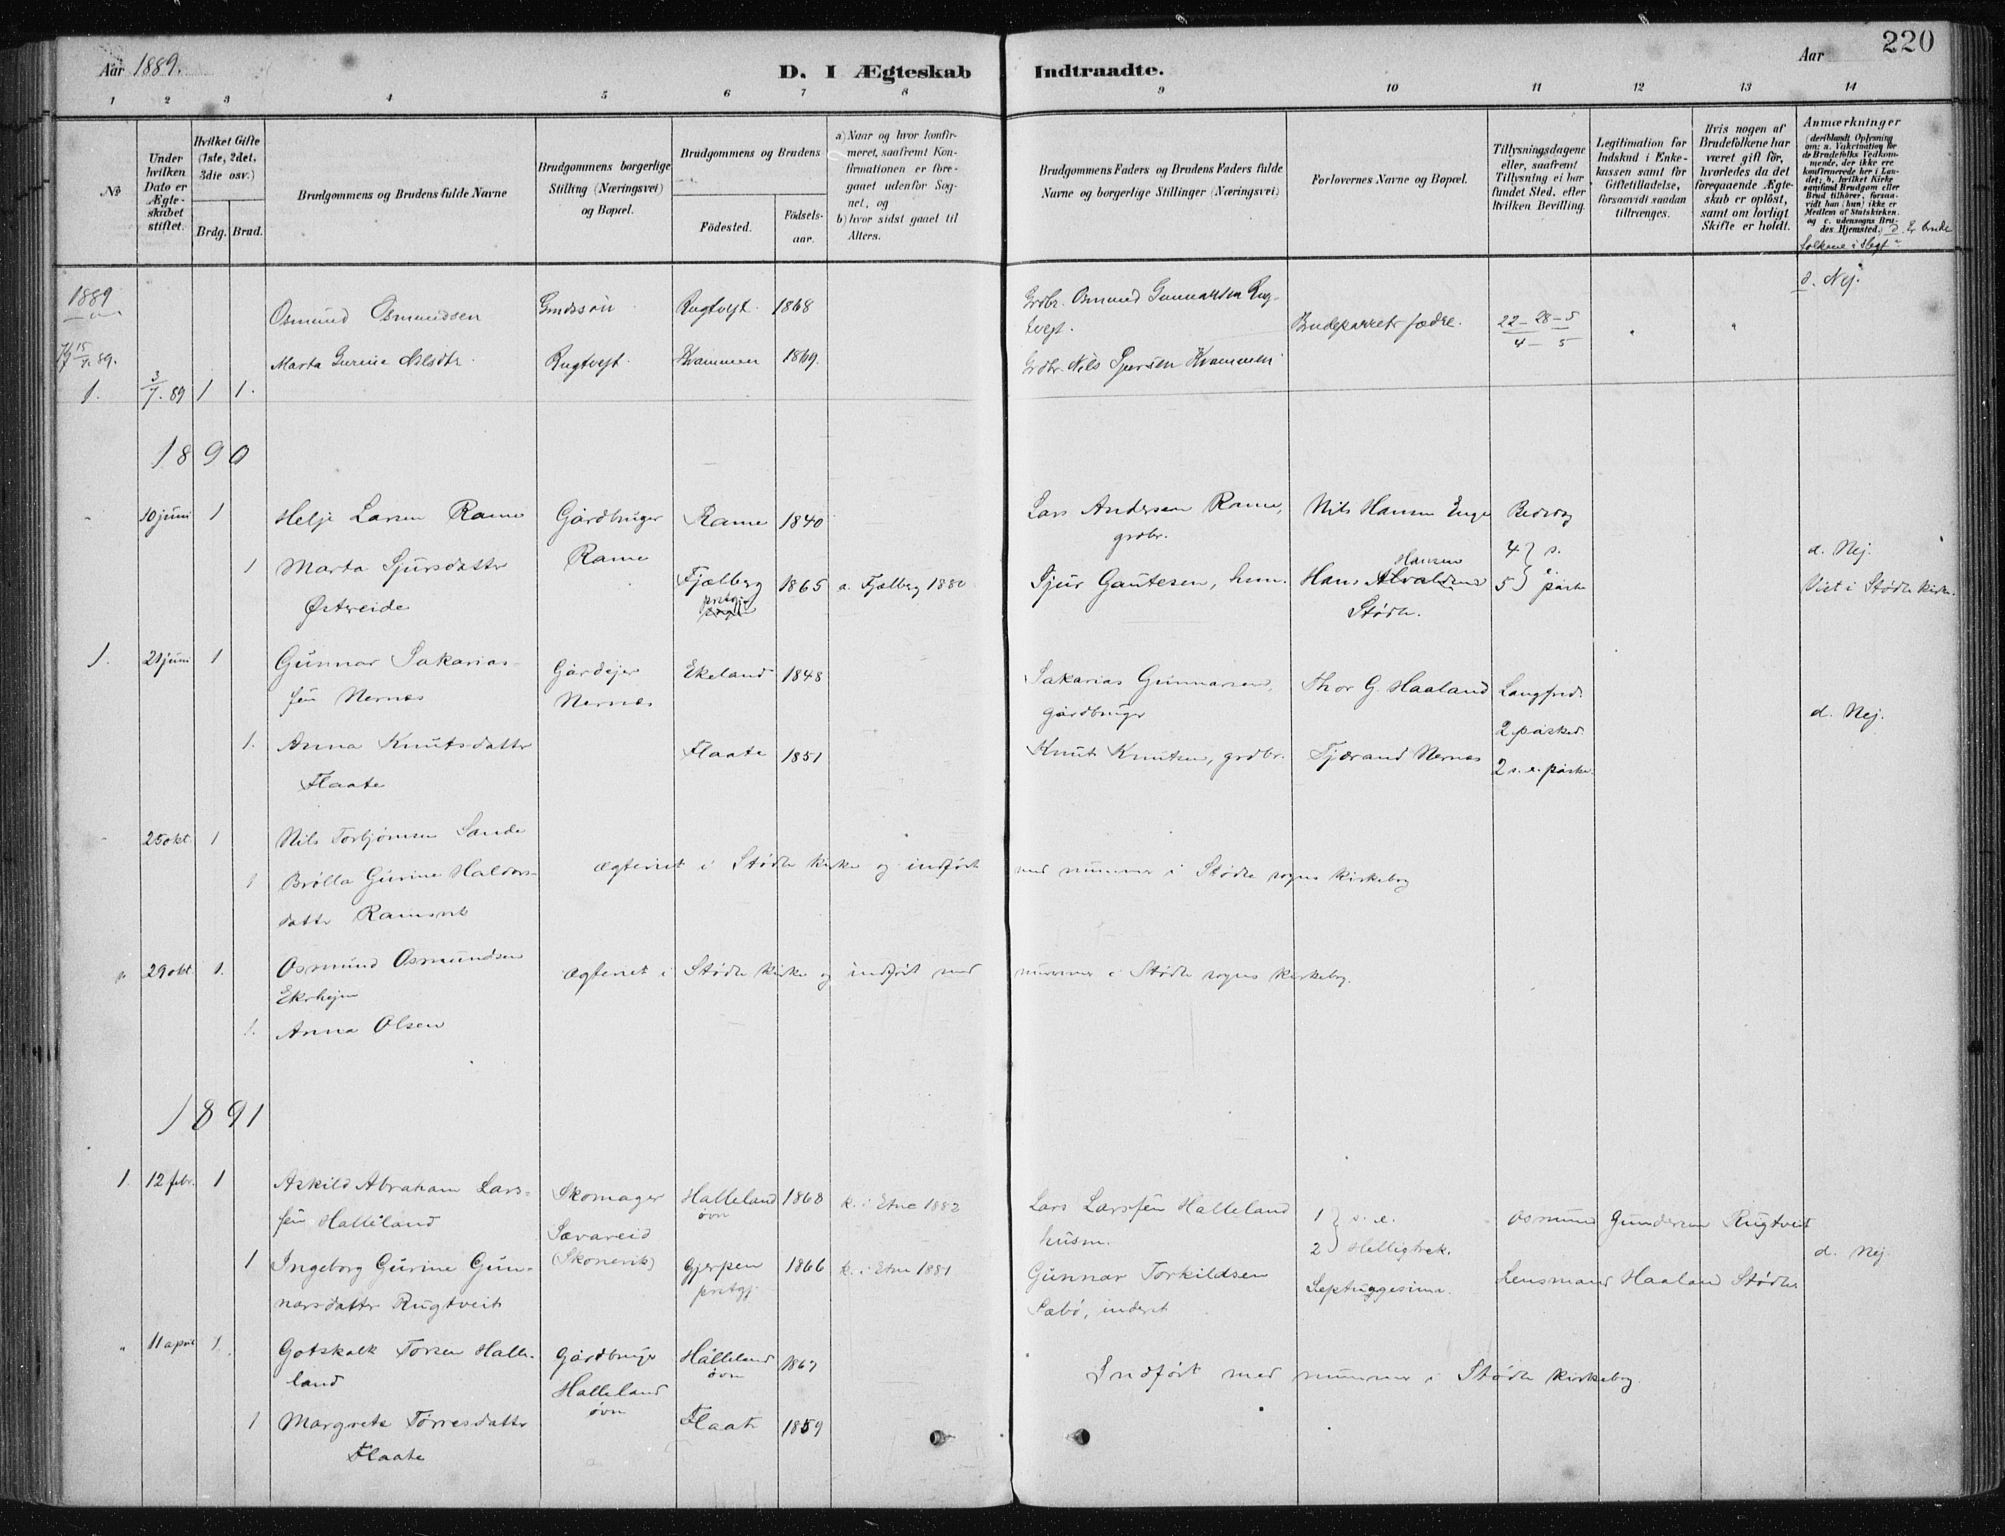 Aar 1889.
D. I Ægteskab Indtraadte.
Aar 220
1 2 3 4 5 6 7 8 9 10 11 12 13 14
No
Under hvilken Dato er Ægteskabet stiftet.
Hvilket Gifte (1ste, 2det, 3die osv.)
Brdg. Brud.
Brudgommens og Brudens fulde Navne
Brudgommens borgerlige Stilling (Næringsvei) og Bopæl.
Brudgommens og Brudens
Fødested. Fødselsaar.
a) Naar og hvor konfirmeret, saafremt Konfirmationen er foregaaet udenfor Sognet, og
b) hvor sidst gaaet til Alters.
Brudgommens Faders og Brudens Faders fulde Navne og borgerlige Stillinger (Næringsvei)
Forlovernes Navne og Bopæl.
Tillysningsdagene eller, saafremt Tillysning ei har fundet Sted, efter hvilken Bevilling.
Legitimation for Indskud i Enkekassen samt for Giftetilladelse, forsaavidt saadan tiltrænges.
Hvis nogen af Brudefolkene har været gift før, hvorledes da det foregaaende Ægteskab er opløst, samt om lovligt Skifte er holdt.
Anmærkninger (deriblandt Oplysning om: a. Vakcination for de Brudefolks Vedkommende, der ikke ere konfirmerede her i Landet; b. hvilket Kirkesamfund Brudgom eller Brud tilhører, forsaavidt han (hun) ikke er Medlem af Statskirken, og c. udensogns Brudes Hjemsted.) d. Er brudefolkene i slegt?
1889
Osmund Osmundsen Grdssøn Rugtveit. 1868 Grdbr. Osmund Gunnarsen Rugtveit. Brudeparrets fædre. 22-28-5 4-5 d. Nej.
Marta Gurine Nilsdtr. Rugtveit. Kvammen 1869. Grdbr. Nils Sjursen Kvammen
1. 3/7.89 1 1.
1890
10 juni 1 Helje Larsen Rame Gårdbruger Rame Rame 1840 Lars Andersen Rame, grdbr. Nils Hansen Enge Bededag
1 Marta Sjursdatter Østreide Fjælberg prstgj. 1865 a. Fjælberg 1880 Sjur Gautesen, husm. Hans Hansen Stødle. 4 } s. 5 } e. påske d. Nej. Viet i Stødle kirke.
1. 21 juni 1 Gunnar Sakariassen Nernes Gårdejer Nernes Ekeland 1848 Sakarias Gunnarsen, gårdbruger Thor G. Haaland Langfred. d. Nej.
1. Anna Knutsdatter Flaate Flaate 1851 Knut Knutsen, grdbr. Tjærand Nernes 2 påsked. 2 s. e. påske
25 okt 1 Nils Torbjørnsen Sande
1 Brølla Gurine Haldorsdatter Ramsvik ægteviet i Stødle kirke og indført med nummer i Stødle sogns kirkebog
" 29 okt 1. Osmund Osmundsen Ekrhejen ægteviet i Stødle kirke og indført med nummer i Stødle sogns kirkebog.
1. Anna Olsen
1891
1. 12 febr. 1 Askild Abraham Larssen Halleland Skomager Sævareid (Skonevik) Halleland øvn 1868 k. i Etne 1883 Lars Larssen Halleland husm. 1 } s. e. 2 } Helligtrek. Osmund Gundersen Rugtveit
1 Ingeborg Gurine Gunnarsdatter Rugtveit Gjerpen prstgj. 1866 k. i Etne 1881 Gunnar Torkildsen Sæbø, inderst Septuagesima. Lensmand Haaland Stødle d. Nej.
" 11 april 1. Gotskalk Torsen Halleland Gårdbruger Halleland øvn Halleland øvn 1867 Indført med nummer i Stødle kirkebog.
1 Margrete Tørresdatter Flaate Flaate 1859